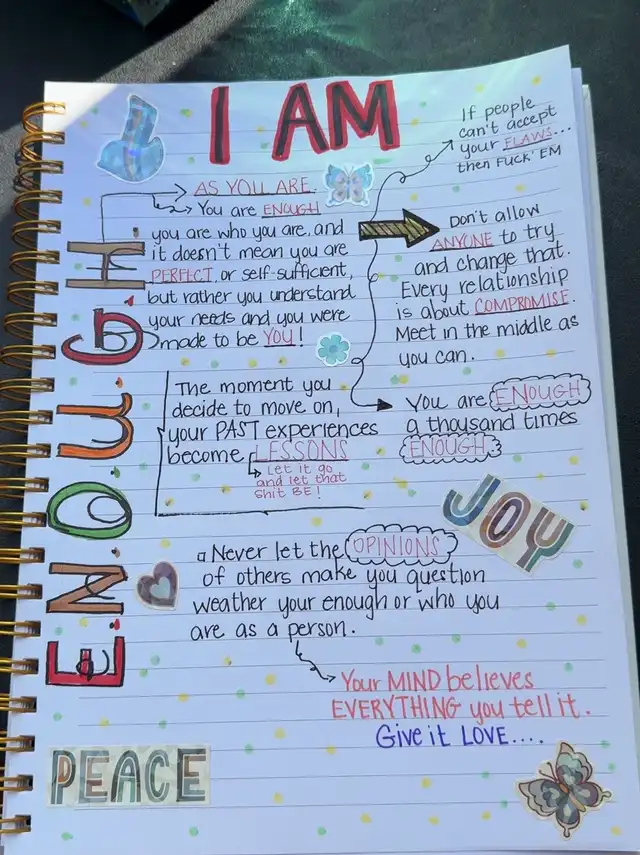 I AM
E.N.O.U.G.H
AS YOU ARE.
You are ENOUGH
you are who you are, and
it doesn't mean you are
PERFECT or self-sufficient,
but rather you understand
your needs and you were
made to be YOU!
If people
can't accept
your FLAWS...
then FUCK 'EM
Don't allow
ANYONE to try
and change that.
Every relationship
is about COMPROMISE.
Meet in the middle as
you can.
The moment you
decide to move on,
your PAST experiences
become LESSONS
Let it go
and let that
shit BE!
You are ENOUGH
a thousand times
ENOUGH.
JOY
Never let the OPINIONS
of others make you question
weather your enough or who you
are as a person.
Your MIND believes
EVERYTHING you tell it.
Give it LOVE....
PEACE